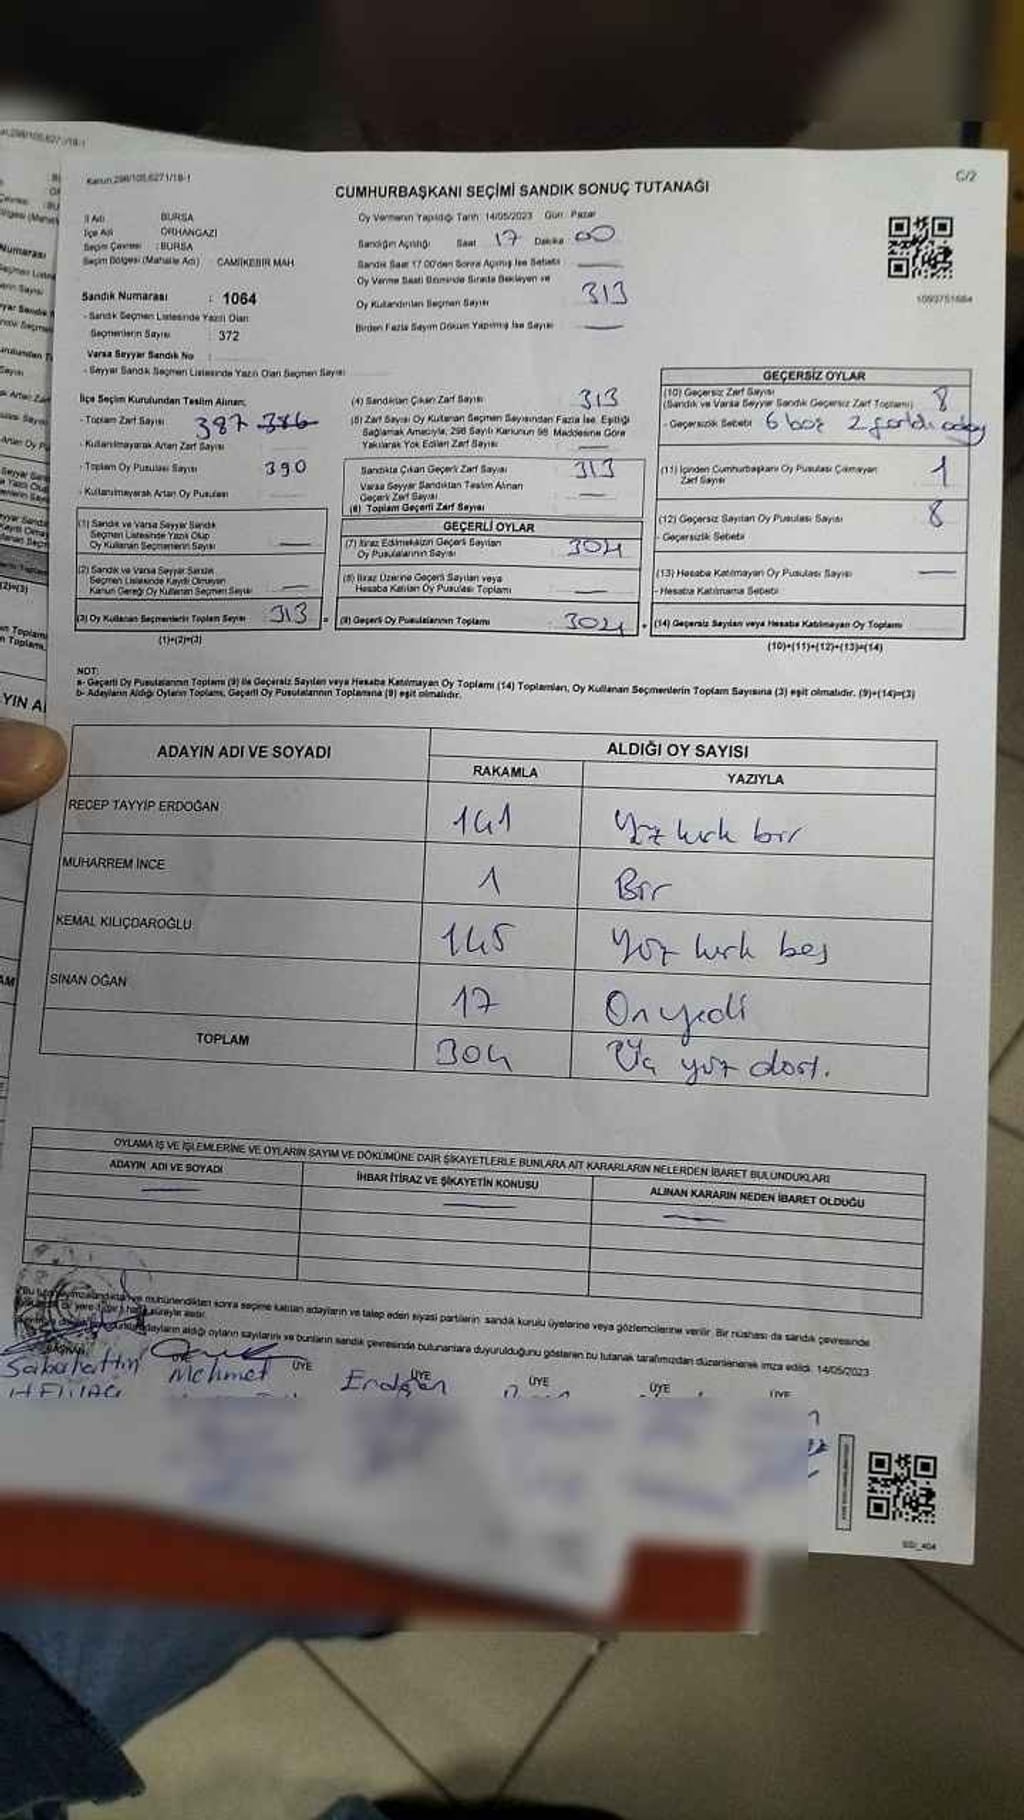 Kanun:298/105,627 1/18-1
C/2
CUMHURBAŞKANI SEÇİMİ SANDIK SONUÇ TUTANAĞI
İl Adı BURSA
İlçe Adı ORHANGAZİ
Seçim Çevresi : BURSA
Seçim Bölgesi (Mahalle Adı) CAMİİKEBİR MAH
Sandık Numarası : 1064
- Sandık Seçmen Listesinde Yazılı Olan
Seçmenlerin Sayısı : 372
Varsa Seyyar Sandık No :
- Seyyar Sandık Seçmen Listesinde Yazılı Olan Seçmen Sayısı
Oy Vermenin Yapıldığı Tarih 14/05/2023 Gün Pazar
Sandığın Açıldığı Saat 17 Dakika 00
Sandık Saat 17:00'den Sonra Açılmış İse Sebebi
Oy Verme Saati Bitiminde Sırada Bekleyen ve
Oy Kullandırılan Seçmen Sayısı 313
Birden Fazla Sayım Döküm Yapılmış İse Sayısı
1093751684
İlçe Seçim Kurulundan Teslim Alınan;
- Toplam Zarf Sayısı 387 386
- Kullanılmayarak Artan Zarf Sayısı
- Toplam Oy Pusulası Sayısı 390
- Kullanılmayarak Artan Oy Pusulası
(1) Sandık ve Varsa Seyyar Sandık
Seçmen Listesinde Yazılı Olup
Oy Kullanan Seçmenlerin Sayısı
(2) Sandık ve Varsa Seyyar Sandık
Seçmen Listesinde Kaydı Olmayan
Kanun Gereği Oy Kullanan Seçmen Sayısı
(3) Oy Kullanan Seçmenlerin Toplam Sayısı 313
(1)+(2)=(3)
(4) Sandıktan Çıkan Zarf Sayısı 313
(5) Zarf Sayısı Oy Kullanan Seçmen Sayısından Fazla İse, Eşitliği
Sağlamak Amacıyla, 298 Sayılı Kanunun 98. Maddesine Göre
Yakılarak Yok Edilen Zarf Sayısı
Sandıkta Çıkan Geçerli Zarf Sayısı 313
Varsa Seyyar Sandıktan Teslim Alınan
Geçerli Zarf Sayısı
(6) Toplam Geçerli Zarf Sayısı
GEÇERLİ OYLAR
(7) İtiraz Edilmeksizin Geçerli Sayılan
Oy Pusulalarının Sayısı 304
(8) İtiraz Üzerine Geçerli Sayılan veya
Hesaba Katılan Oy Pusulası Toplamı
(9) Geçerli Oy Pusulalarının Toplamı 304
GEÇERSİZ OYLAR
(10) Geçersiz Zarf Sayısı 8
(Sandık ve Varsa Seyyar Sandık Geçersiz Zarf Toplamı)
- Geçersizlik Sebebi 6 boş 2
(11) İçinden Cumhurbaşkanı Oy Pusulası Çıkmayan
Zarf Sayısı 1
(12) Geçersiz Sayılan Oy Pusulası Sayısı 8
- Geçersizlik Sebebi
(13) Hesaba Katılmayan Oy Pusulası Sayısı
- Hesaba Katılmama Sebebi
(14) Geçersiz Sayılan veya Hesaba Katılmayan Oy Toplamı
(10)+(11)+(12)+(13)=(14)
NOT:
a- Geçerli Oy Pusulasının Toplamı (9) ile Geçersiz Sayılan veya Hesaba Katılmayan Oy Toplamı (14) Toplamları, Oy Kullanan Seçmenlerin Toplam Sayısına (3) eşit olmalıdır. (9)+(14)=(3)
b- Adayların Aldığı Oyların Toplamı, Geçerli Oy Pusulalarının Toplamına (9) eşit olmalıdır.
ADAYIN ADI VE SOYADI ALDIĞI OY SAYISI
RAKAMLA YAZIYLA
RECEP TAYYİP ERDOĞAN 141 Yüz kırk bir
MUHARREM İNCE 1 Bir
KEMAL KILIÇDAROĞLU 145 Yüz kırk beş
SİNAN OĞAN 17 On yedi
TOPLAM 304 Üç yüz dört.
OYLAMA İŞ VE İŞLEMLERİNE VE OYLARIN SAYIM VE DÖKÜMÜNE DAİR ŞİKAYETLERLE BUNLARA AİT KARARLARIN NELERDEN İBARET BULUNDUKLARI
ADAYIN ADI VE SOYADI İHBAR İTİRAZ VE ŞİKAYETİN KONUSU ALINAN KARARIN NEDEN İBARET OLDUĞU
mühürlendikten sonra seçime katılan adayların ve talep eden siyasi partilerin sandık kurulu üyelerine veya gözlemcilerine verilir. Bir nüshası da sandık çevresinde
adayların aldığı oyların sayılarını ve bunların sandık çevresinde bulunanlara duyurulduğunu gösteren bu tutanak tarafımızdan düzenlenerek imza edildi. 14/05/2023
BAŞKAN ÜYE ÜYE ÜYE ÜYE ÜYE
Sabahattin Mehmet Erdoğan
SSİ_404